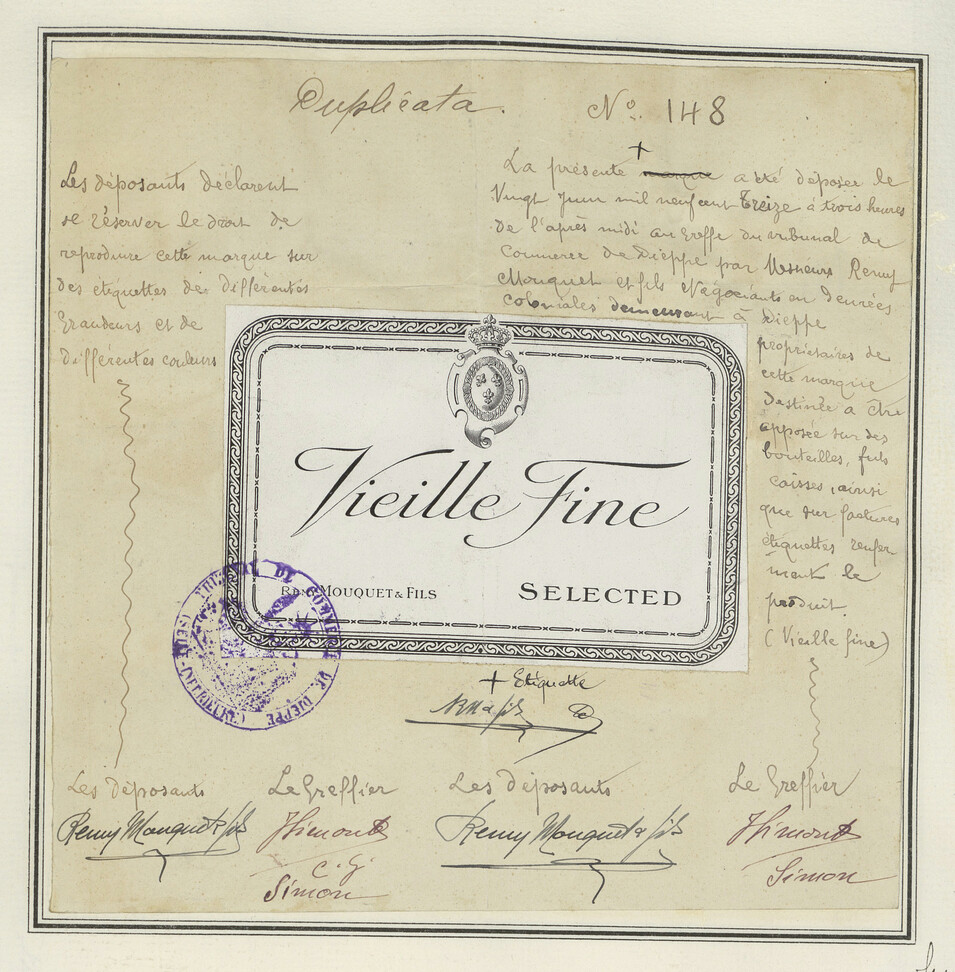 Duplicata.
N° 148
Les déposants déclarent
se réserver le droit de
reproduire cette marque sur
des étiquettes de différentes
grandeurs et de
différentes couleurs
La présente + marque a été déposée le
Vingt Juin mil neuf cent treize à trois heures
de l'après midi au Greffe du tribunal de
Commerce de Dieppe par Messieurs Remy
Mouquet et fils Négociants en denrées
coloniales demeurant à Dieppe
propriétaires de
cette marque
destinée a être
apposée sur des
bouteilles, fûts
caisses, ainsi
que sur factures
étiquettes renfer
mant le
produit.
(Vieille fine)
Vieille Fine
REMY MOUQUET & FILS
SELECTED
TRIBUNAL DE COMMERCE DE DIEPPE (SEINE-INFÉRIEURE)
+ Etiquette
RM & fils
Les déposants
Le Greffier
Les Déposants
Le Greffier
Remy Mouquet & fils
Remy Mouquet & fils
c. g.
Simon
Simon